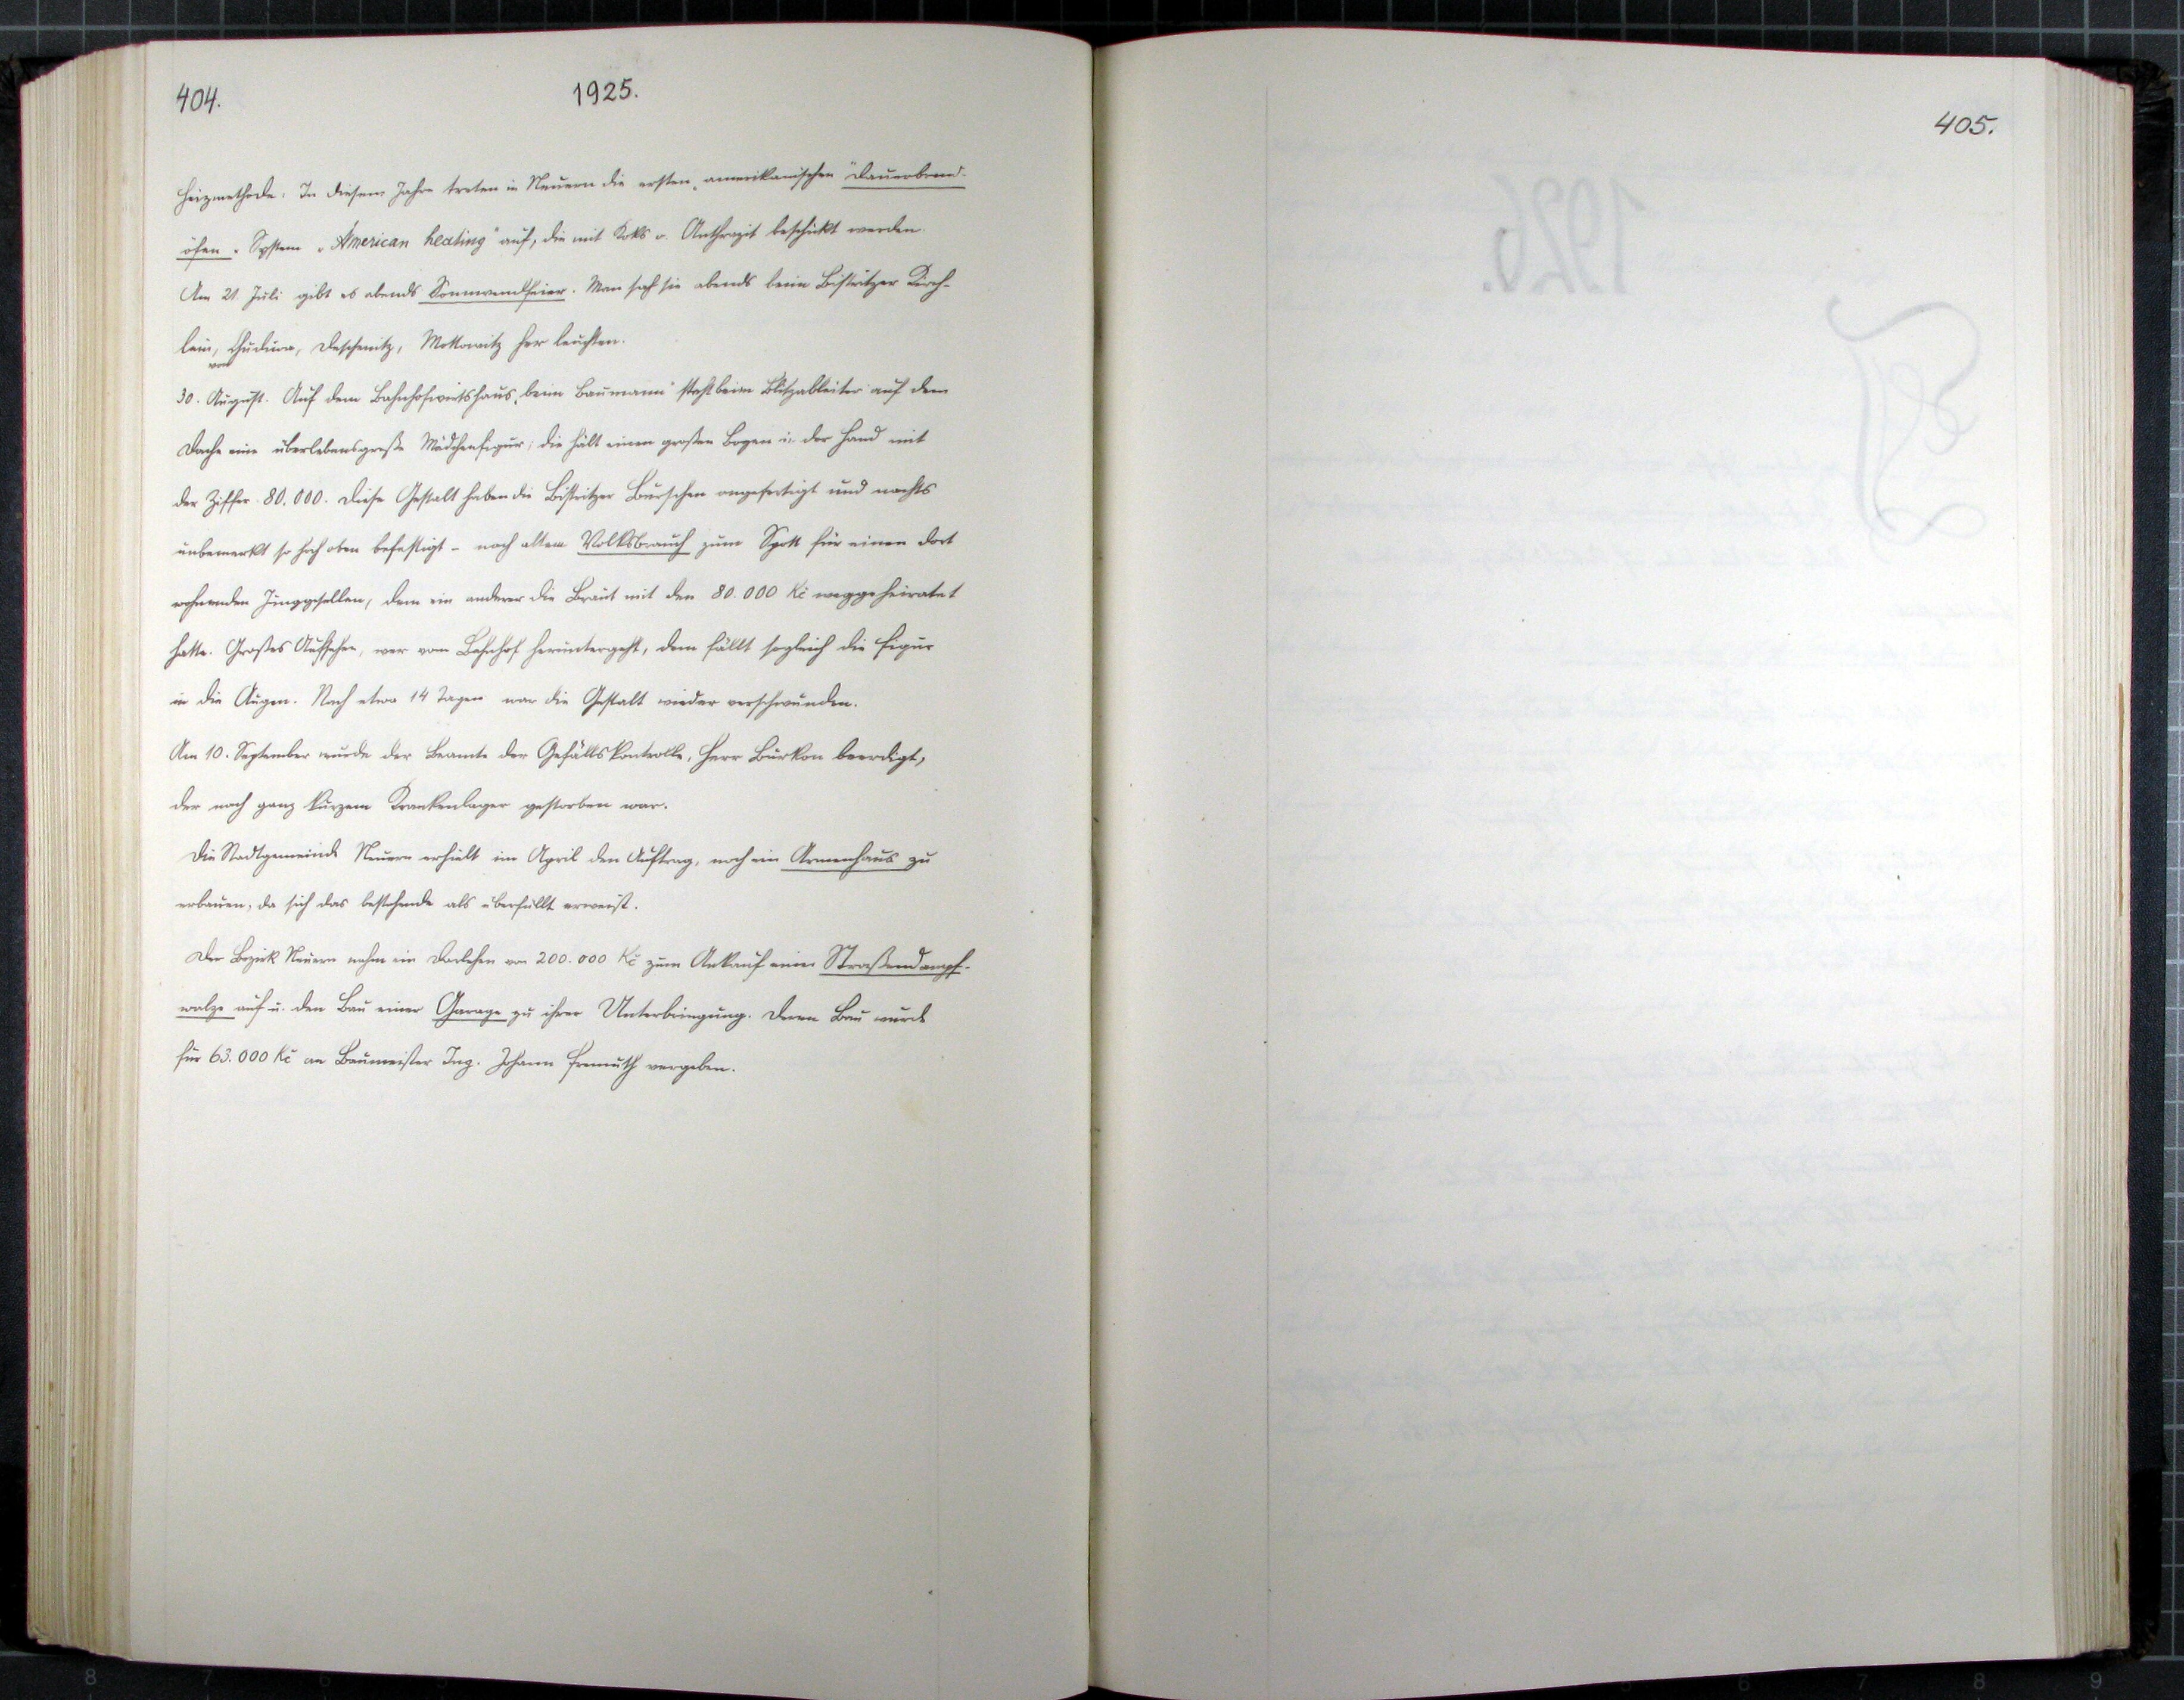 404.
1925.
Heizmethode: In diesem Jahre treten in Neuern die ersten „amerikanischen" Dauerbrand-
öfen - System „American heating" auf, die mit Koks u. Anthrazit beschickt werden.
Am 21. Juli gibt es abends Sonnwendfeier. Man sah sie abends beim Bistritzer Kirch-
lein, von Chudiwa, Deschenitz, Mottowitz her leuchten.
30. August. Auf dem Bahnhofwirtshaus „beim Baumann" steht beim Blitzableiter auf dem
Dache eine überlebensgroße Mädchenfigur; die hält einen großen Bogen in der Hand mit
der Ziffer 80.000. Diese Gestalt haben die Bistritzer Burschen angefertigt und nachts
unbemerkt so hoch oben befestigt - nach altem Volksbrauch zum Spott für einen dort
wohnenden Junggesellen, dem ein anderer die Braut mit den 80.000 Kč weggeheiratet
hatte. Großes Aufsehen, wer vom Bahnhof heruntergeht, dem fällt sogleich die Figur
in die Augen. Nach etwa 14 Tagen war die Gestalt wieder verschwunden.
Am 10. September wurde der Beamte der Gefällskontrolle, Herr Burkon beerdigt,
der nach ganz kurzem Krankenlager gestorben war.
Die Stadtgemeinde Neuern erhielt im April den Auftrag, noch ein Armenhaus zu
erbauen, da sich das bestehende als überfüllt erweist.
Der Bezirk Neuern nahm ein Darlehen von 200.000 Kč zum Ankauf einer Straßendampf-
walze auf u. den Bau einer Garage zu ihrer Unterbringung. Deren Bau wurde
für 63.000 Kč an Baumeister Ing. Johann Fremuth vergeben.
405.